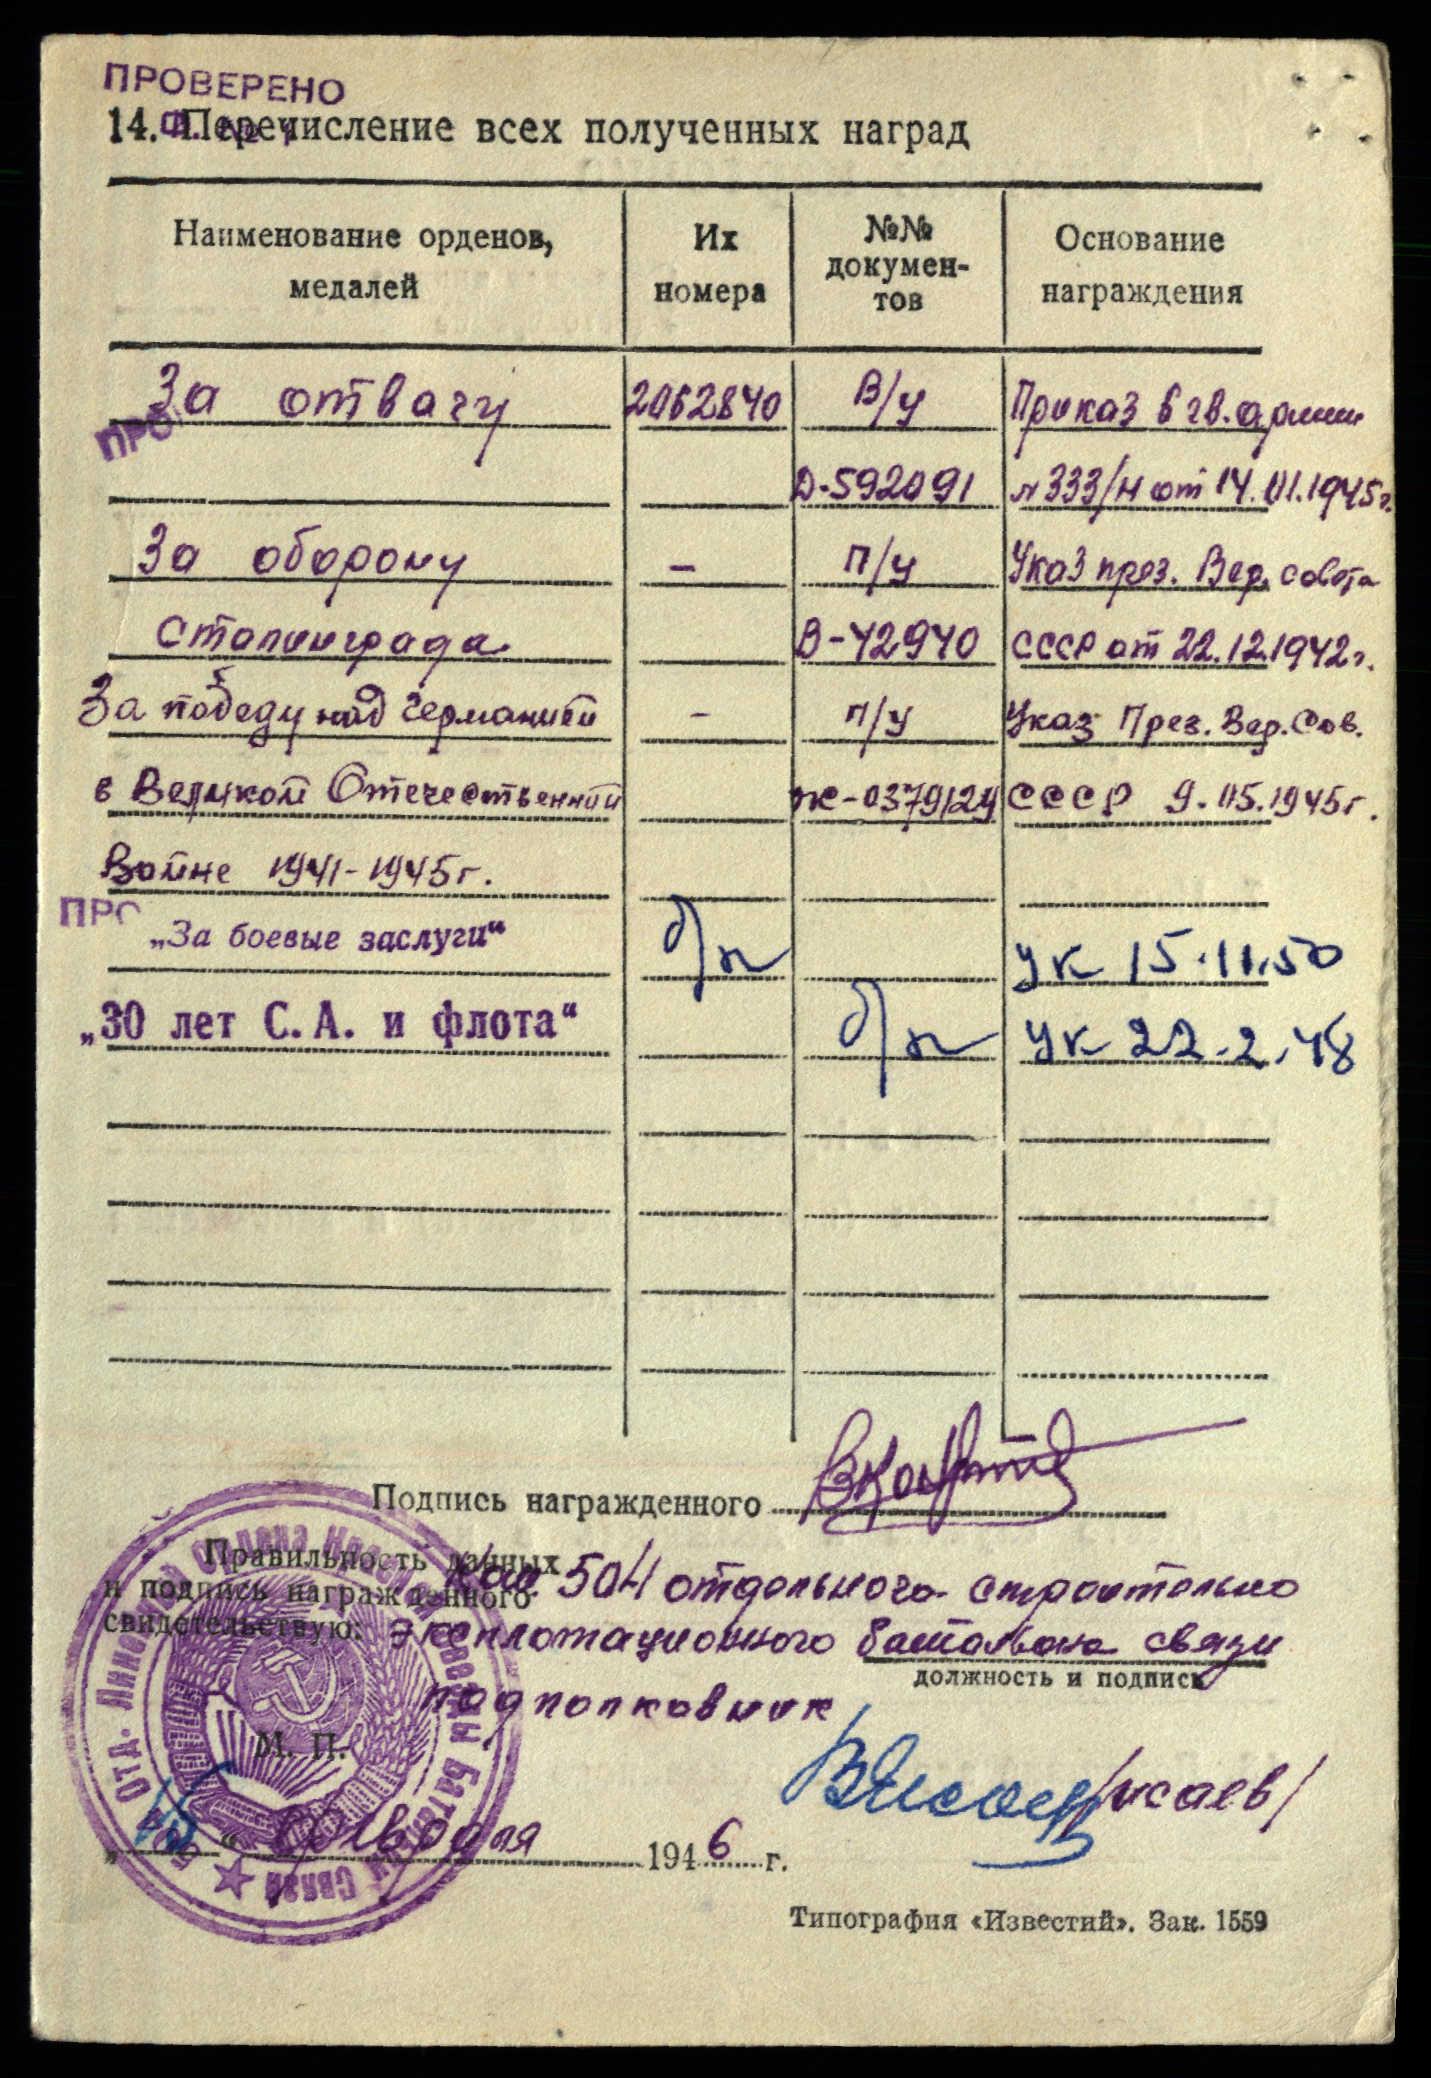 ПРОВЕРЕНО
14. Перечисление всех полученных наград
Наименование орденов, медалей
Их номера
№№ докумен-тов
Основание награждения
За отвагу 2062840 В/у Приказ 6 гв. армии
ПРО
Д-592091 № 333/н от 14.01.1945г.
За оборону - П/у Указ през. Вер. совета
Сталинграда В-42940 СССР от 22.12.1942г.
За победу над Германией - П/у Указ През. Вер. Сов.
в Великой Отечественной Ж-0379124 СССР 9.05.1945г.
Войне 1941-1945г.
ПРО
„За боевые заслуги“ б/н УК 15.11.50
„30 лет С. А. и флота“ б/н УК 22.2.48
Подпись награжденного
Правильность данных
и подпись награжденного
свидетельствую:
504 отдельного строительно
эксплотационного батальона связи
должность и подпись
подполковник
М. П.
/исаев/
„15“ февраля 1946 г.
Типография «Известий». Зак. 1559